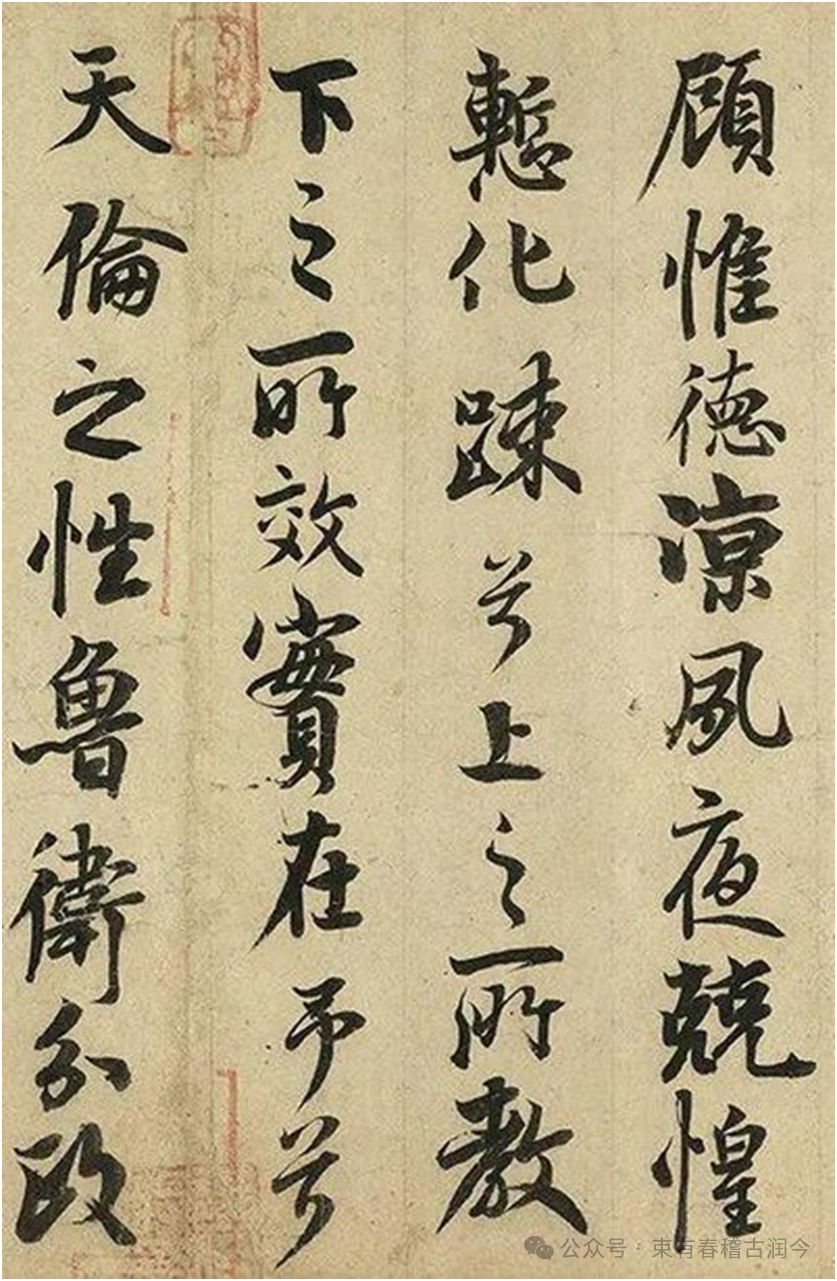 顧惟德涼夙夜兢惶
慙化踈兮上之所教
下之所效實在予兮
天倫之性魯衛分政
公众号：束有春稽古润今